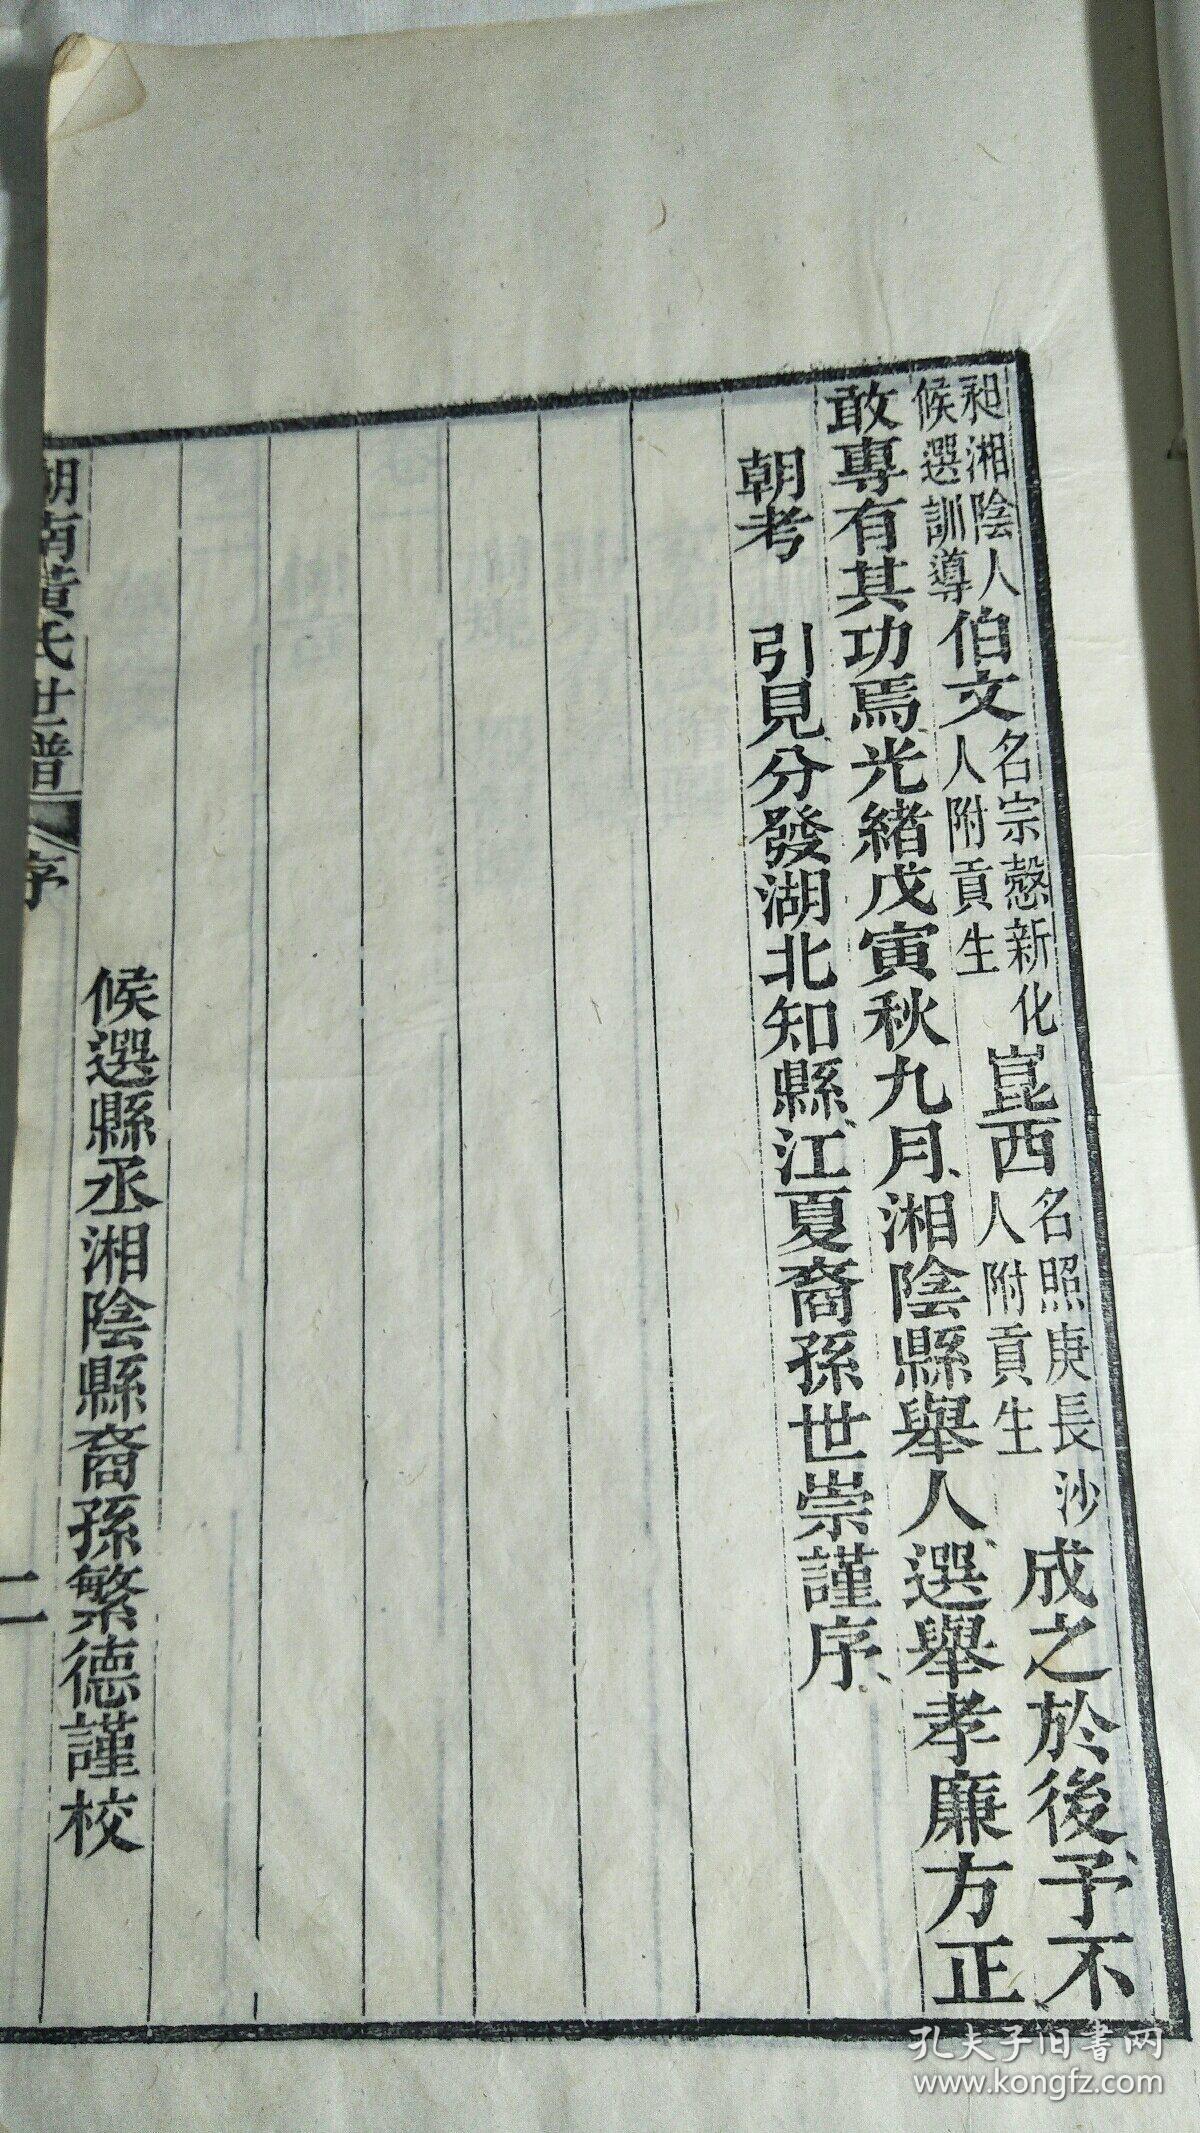 昶湘陰人候選訓導伯文名宗愨新化人附貢生崑西名照庚長沙人附貢生成之於後予不
敢專有其功焉光緒戊寅秋九月湘陰縣舉人選舉孝廉方正
朝考　引見分發湖北知縣江夏裔孫世崇謹序
候選縣丞湘陰縣裔孫繁德謹校
湖南黃氏世譜　序　二
孔夫子旧书网
www.kongfz.com